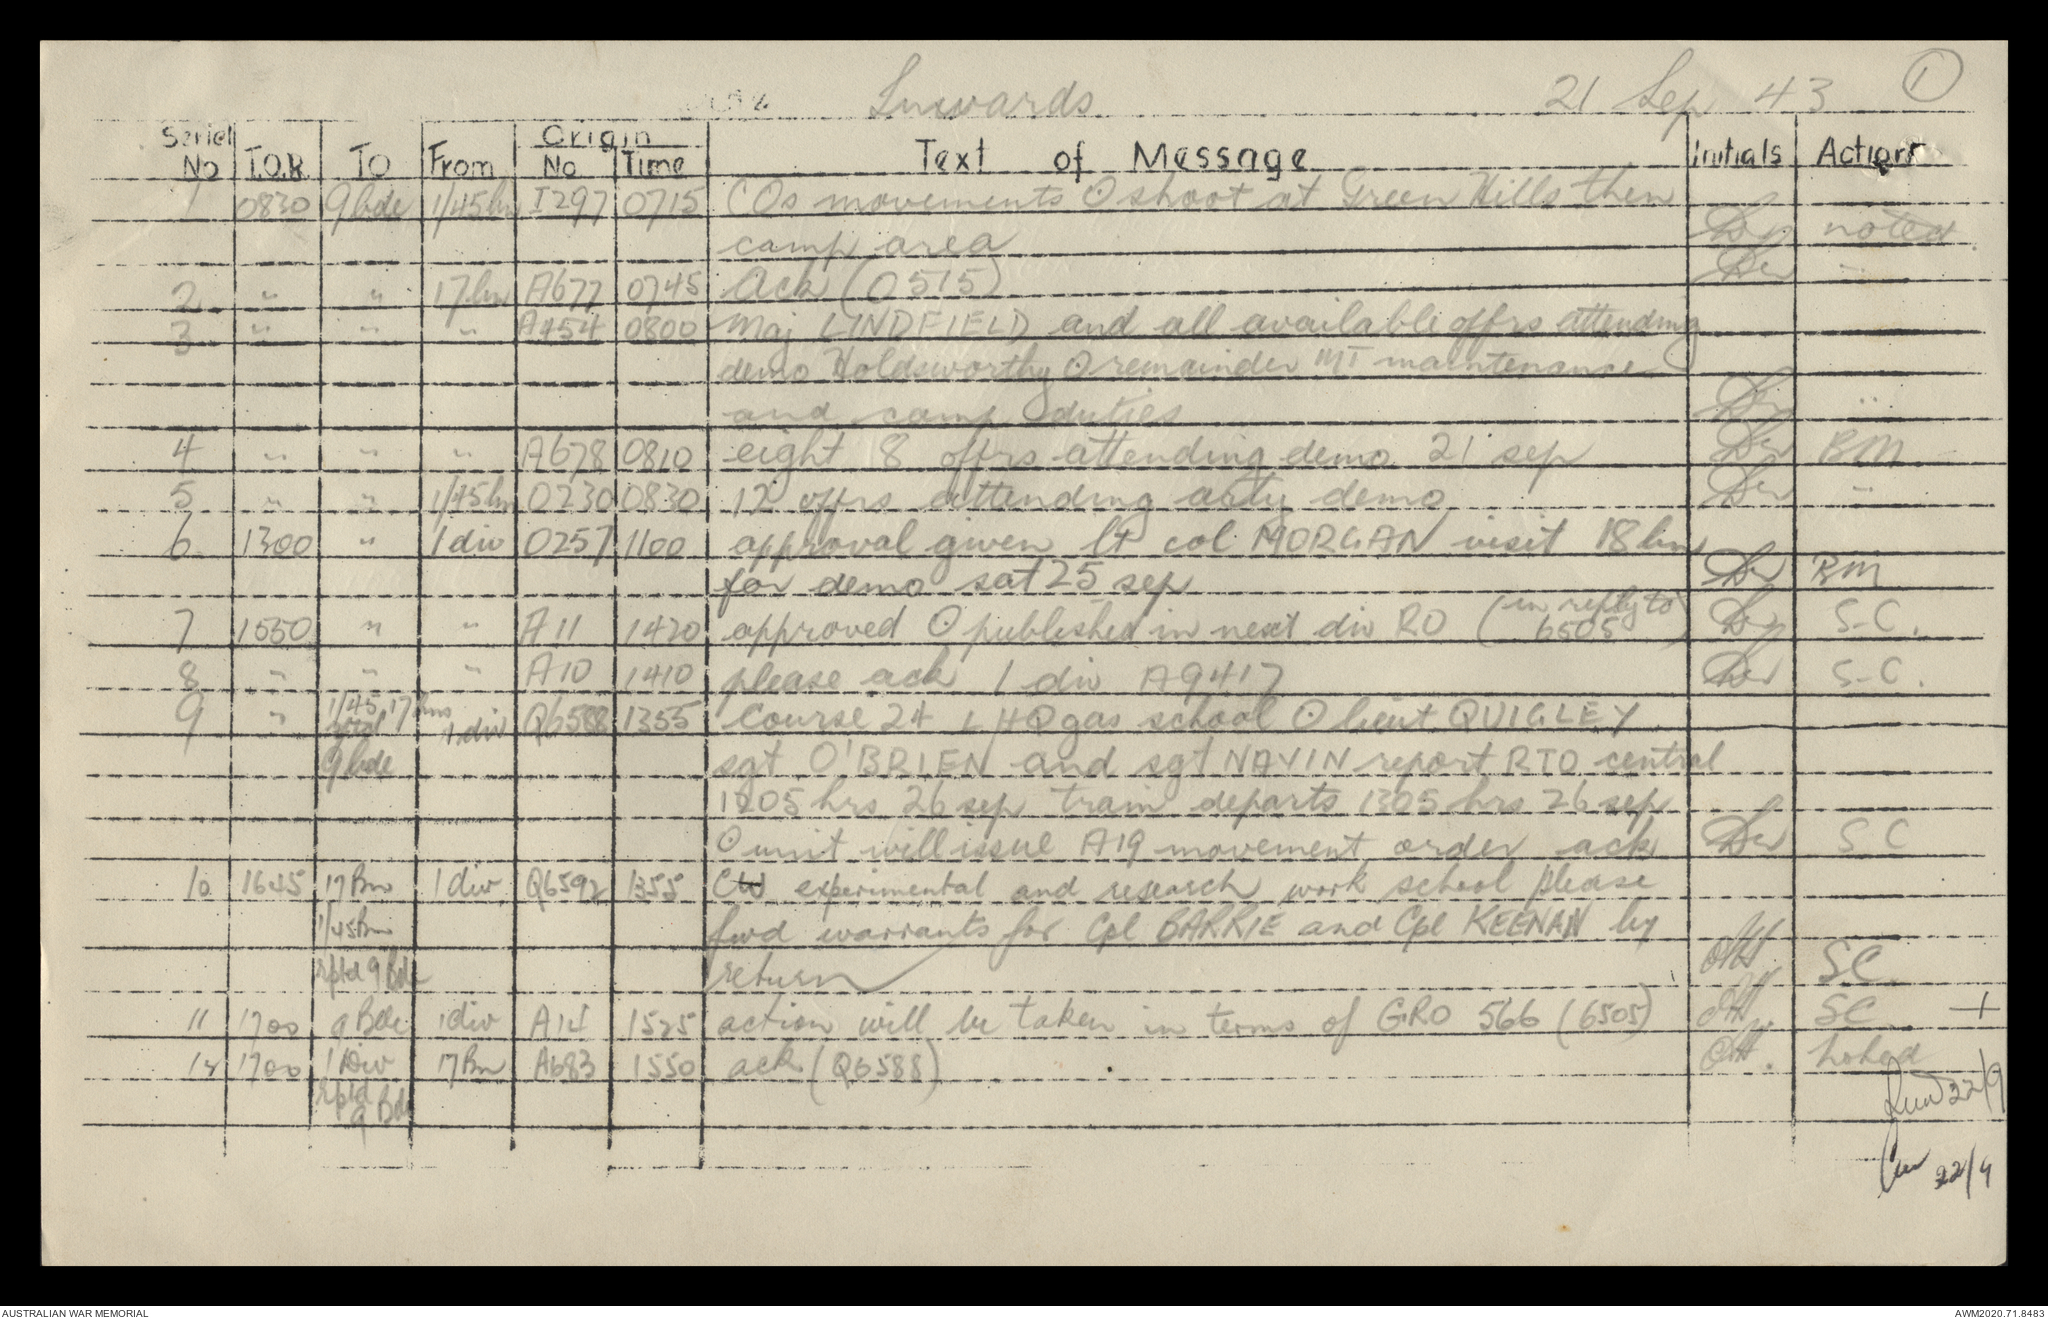 Inwards 21 Sep 43 1
Serial No T.O.R. TO From Origin No Time Text of Message Initials Action
1 0830 9 bde 1/45 bn I297 0715 COs movements O shoot at Green Hills then
camp area noted
2 " " 17 bn A677 0745 Ack (0515) "
3 " " " A454 0800 Maj LINDFIELD and all available offrs attending
demo Holdsworthy O remainder MT maintenance
and camp duties "
4 " " " A678 0810 eight 8 offrs attending demo 21 sep BM
5 " " 1/45 bn O230 0830 12 offrs attending arty demo "
6 1300 " 1 div O257 1100 approval given lt col MORGAN visit 18 bn
for demo sat 25 sep BM
7 1550 " " A11 1420 approved O published in next div RO (in reply to
6505) S-C.
8 " " " A10 1410 please ack 1 div A9417 S-C.
9 " 1/45, 17 Bns 1 div Q6588 1355 Course 24 LHQ gas school O lieut QUIGLEY
rptd
9 bde sgt O'BRIEN and sgt NAVIN report RTO central
1205 hrs 26 sep train departs 1305 hrs 26 sep
O unit will issue A19 movement order ack SC
10 1645 17 Bn 1 div Q6592 1355 CW experimental and research work school please
1/45 Bn fwd warrants for Cpl BARRIE and Cpl KEENAN by
rptd 9 Bde return SC
11 1700 9 Bde 1 div A14 1525 action will be taken in terms of GRO 566 (6505) SC
12 1700 1 Div 17 Bn A683 1550 ack (Q6588) noted
rptd
9 Bde 22/9
22/9
AUSTRALIAN WAR MEMORIAL AWM2020.71.8483